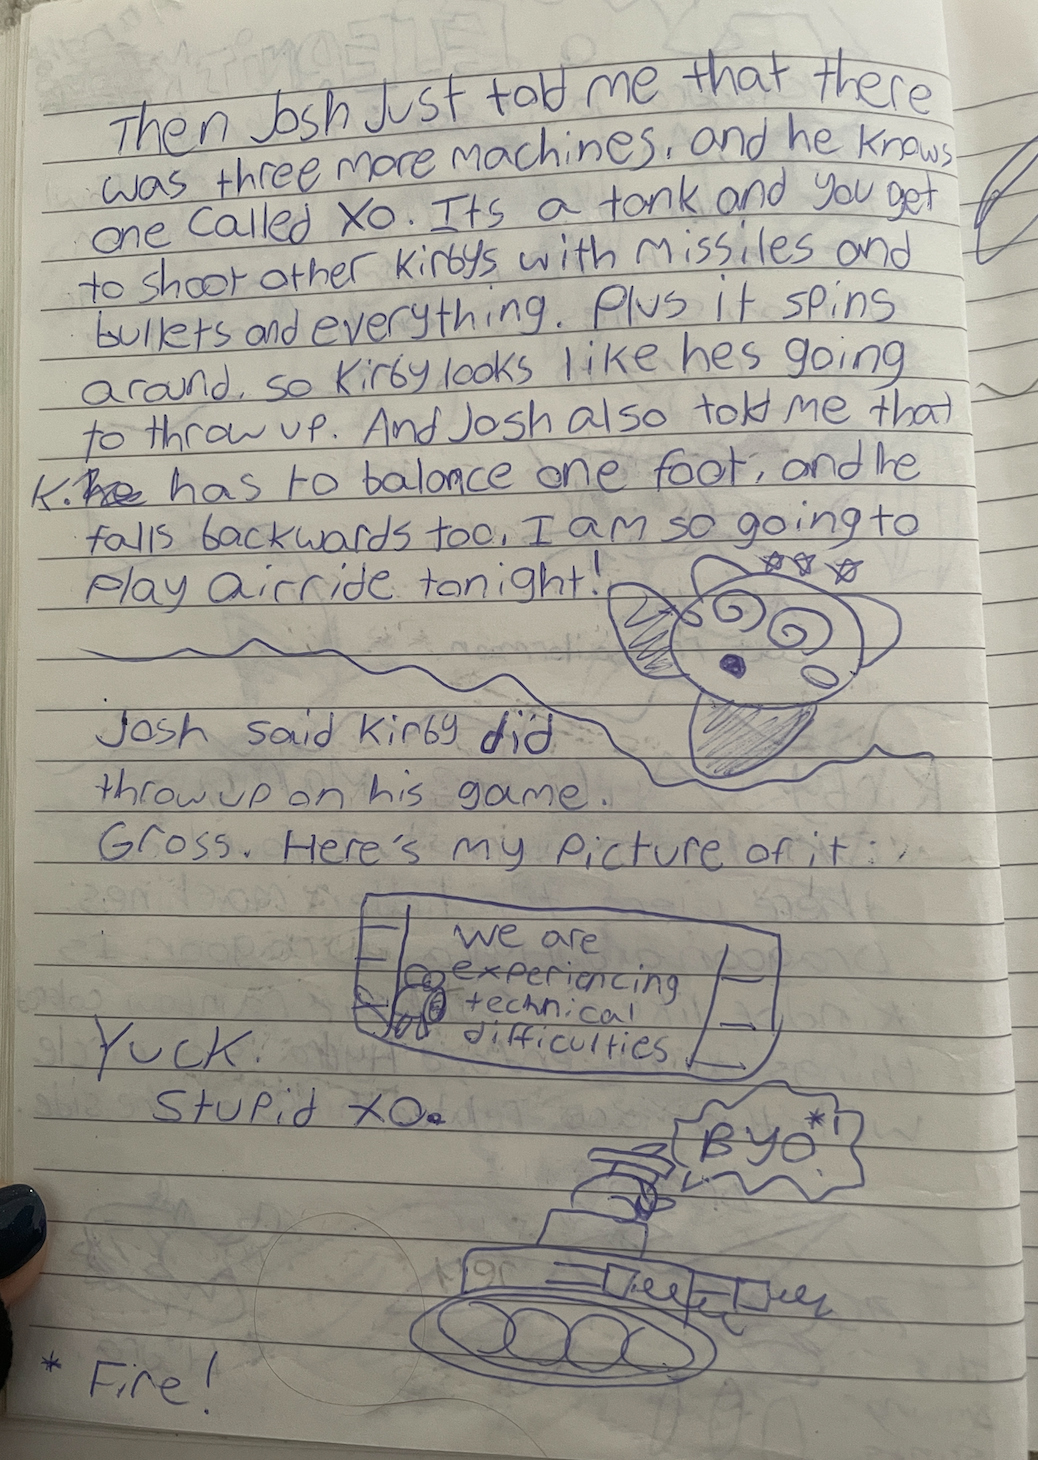 Then Josh Just told me that there
was three more machines, and he knows
one called XO. Its a tank and you get
to shoot other Kirbys with missiles and
bullets and everything. Plus it spins
around, so Kirby looks like hes going
to throw up. And Josh also told me that
K. has to balance one foot, and he
falls backwards too, I am so going to
Play airride tonight!
Josh said Kirby did
throw up on his game.
Gross. Here's my picture of it:
We are
experiencing
technical
difficulties
Yuck.
Stupid XO.
BYO*!
* Fire!